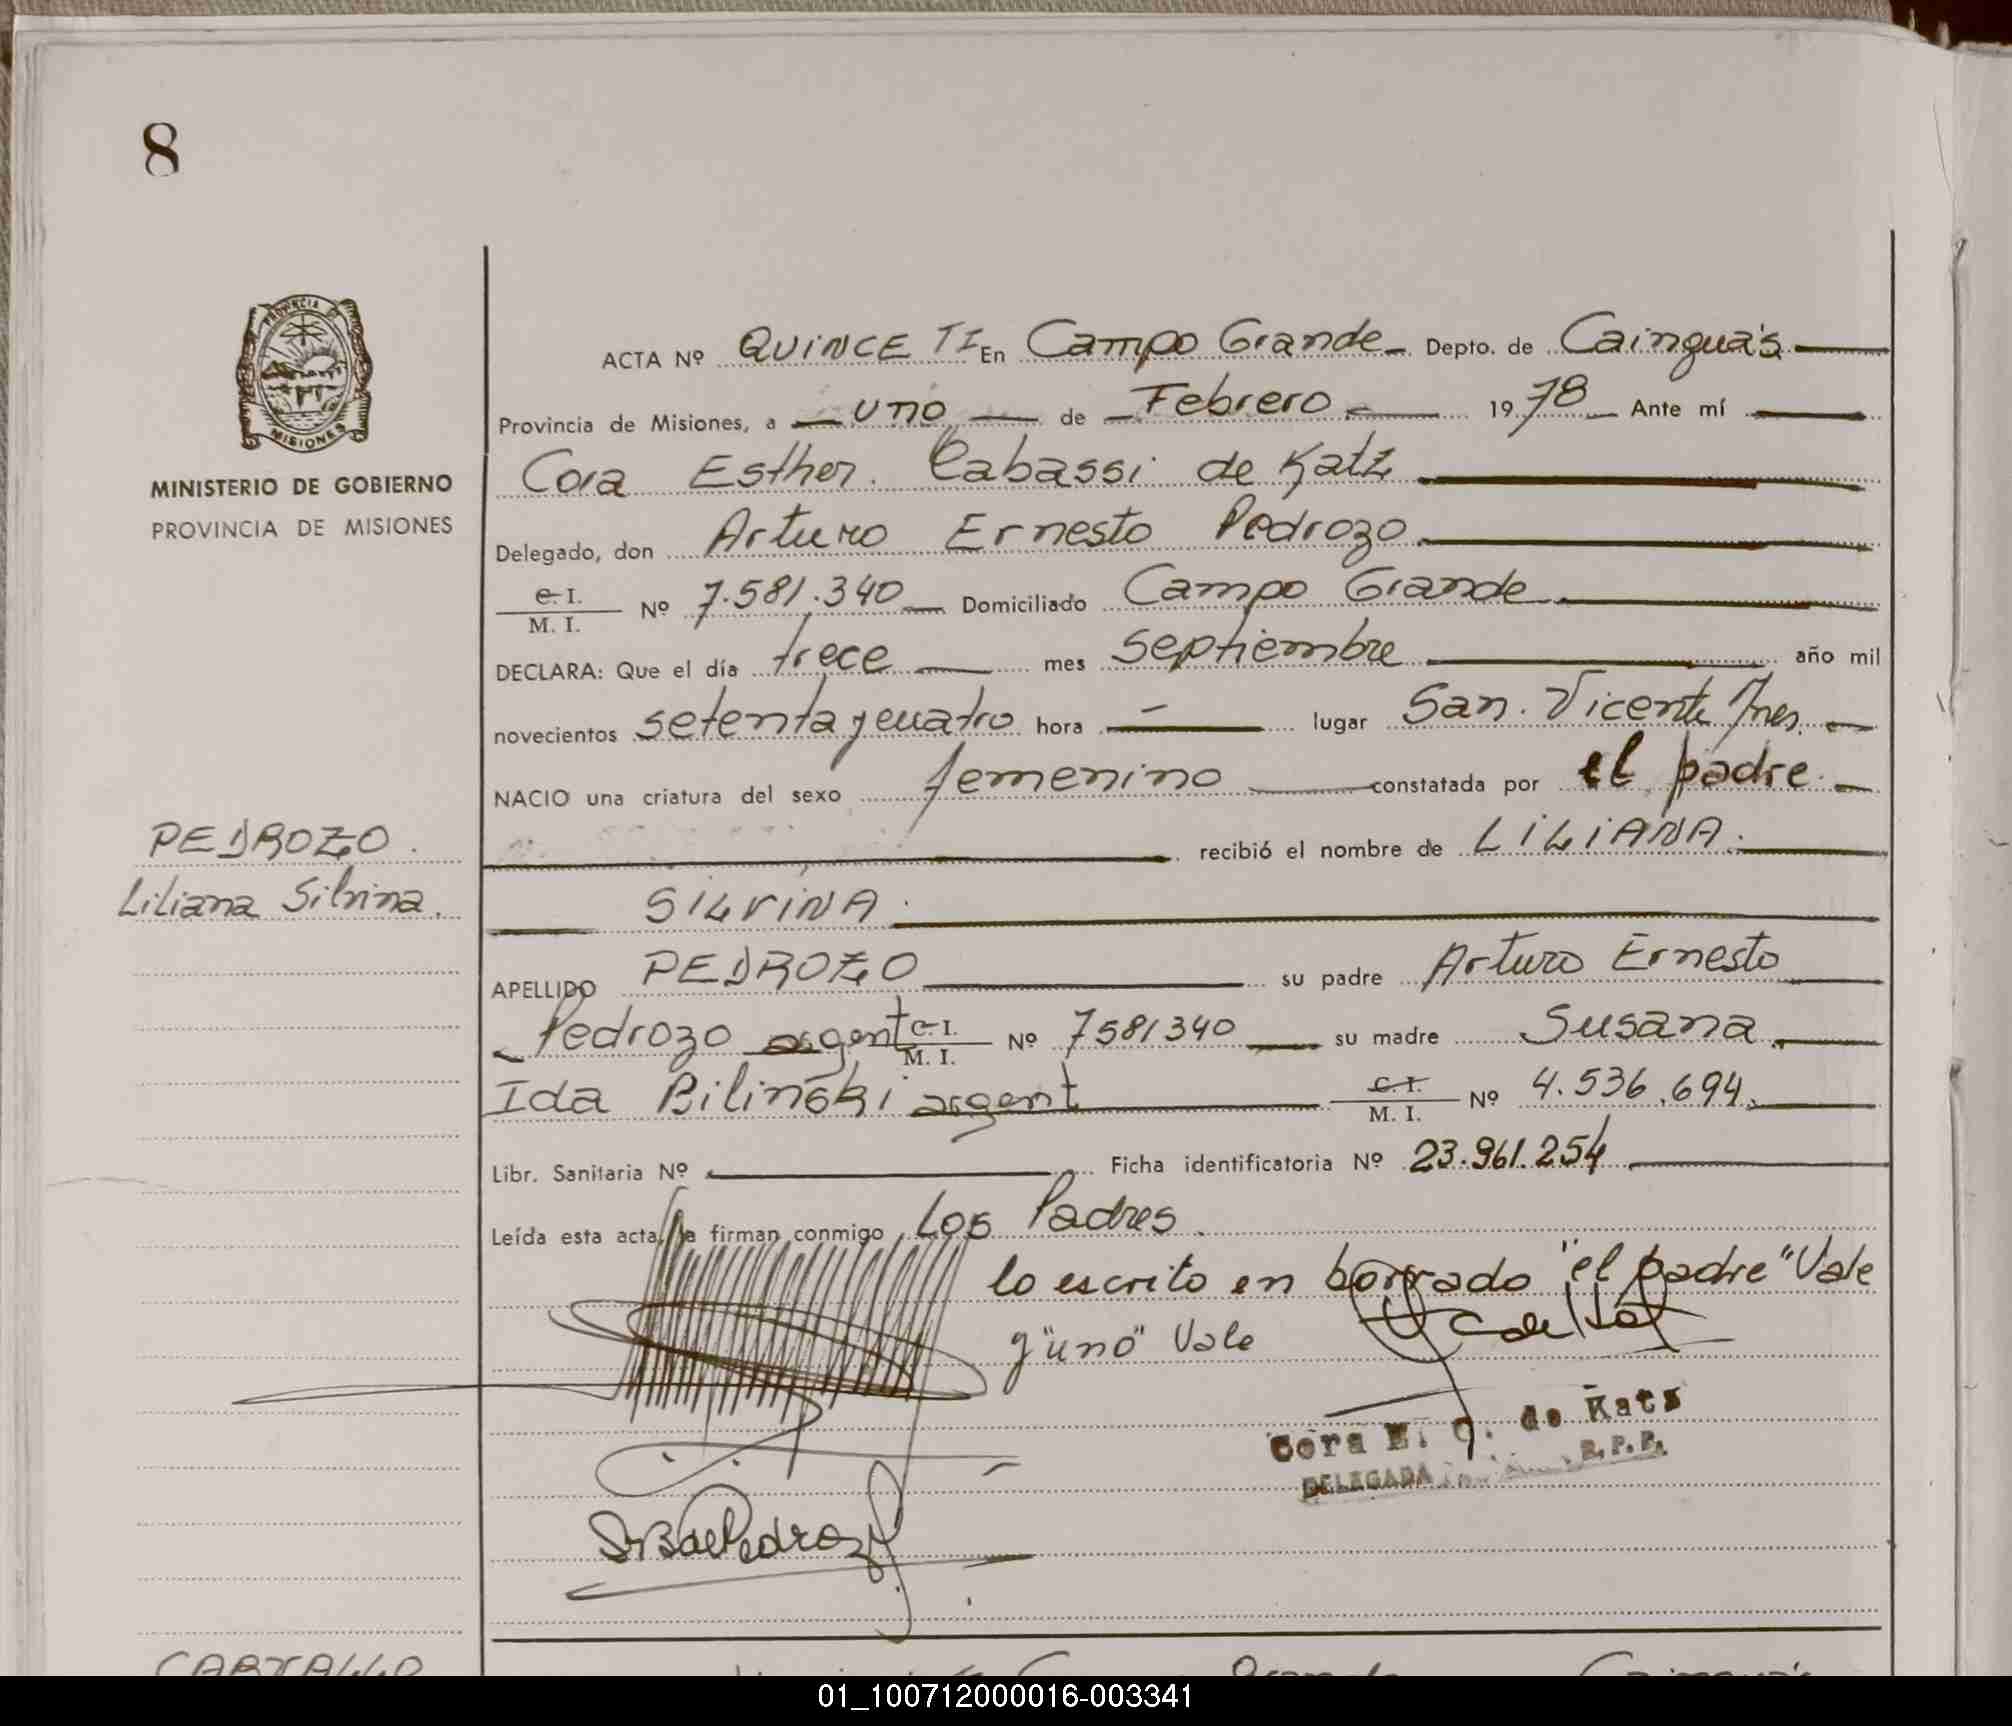 8
PROVINCIA DE
MISIONES
MINISTERIO DE GOBIERNO
PROVINCIA DE MISIONES
ACTA Nº QUINCE TI En Campo Grande Depto. de Cainguás
Provincia de Misiones, a uno de Febrero 1978 Ante mí
Cora Esther Cabassi de Katz
Delegado, don Arturo Ernesto Pedrozo
C. I.
M. I. Nº 7.581.340 Domiciliado Campo Grande
DECLARA: Que el día trece mes septiembre año mil
novecientos setenta y cuatro hora — lugar San Vicente Mnes.
NACIO una criatura del sexo femenino constatada por el padre
PEDROZO
recibió el nombre de LILIANA
Liliana Silvina.
SILVINA
APELLIDO PEDROZO su padre Arturo Ernesto
Pedrozo argent C. I. M. I. Nº 7581340 su madre Susana
Ida Bilinski argent C. I. M. I. Nº 4.536.694
Libr. Sanitaria Nº Ficha identificatoria Nº 23.961.254
Leída esta acta, la firman conmigo Los Padres
lo escrito en borrado "el padre" Vale
y "uno" Vale
Cora E. C. de Kats
DELEGADA R.P.P.
S B de Pedrozo
01_100712000016-003341